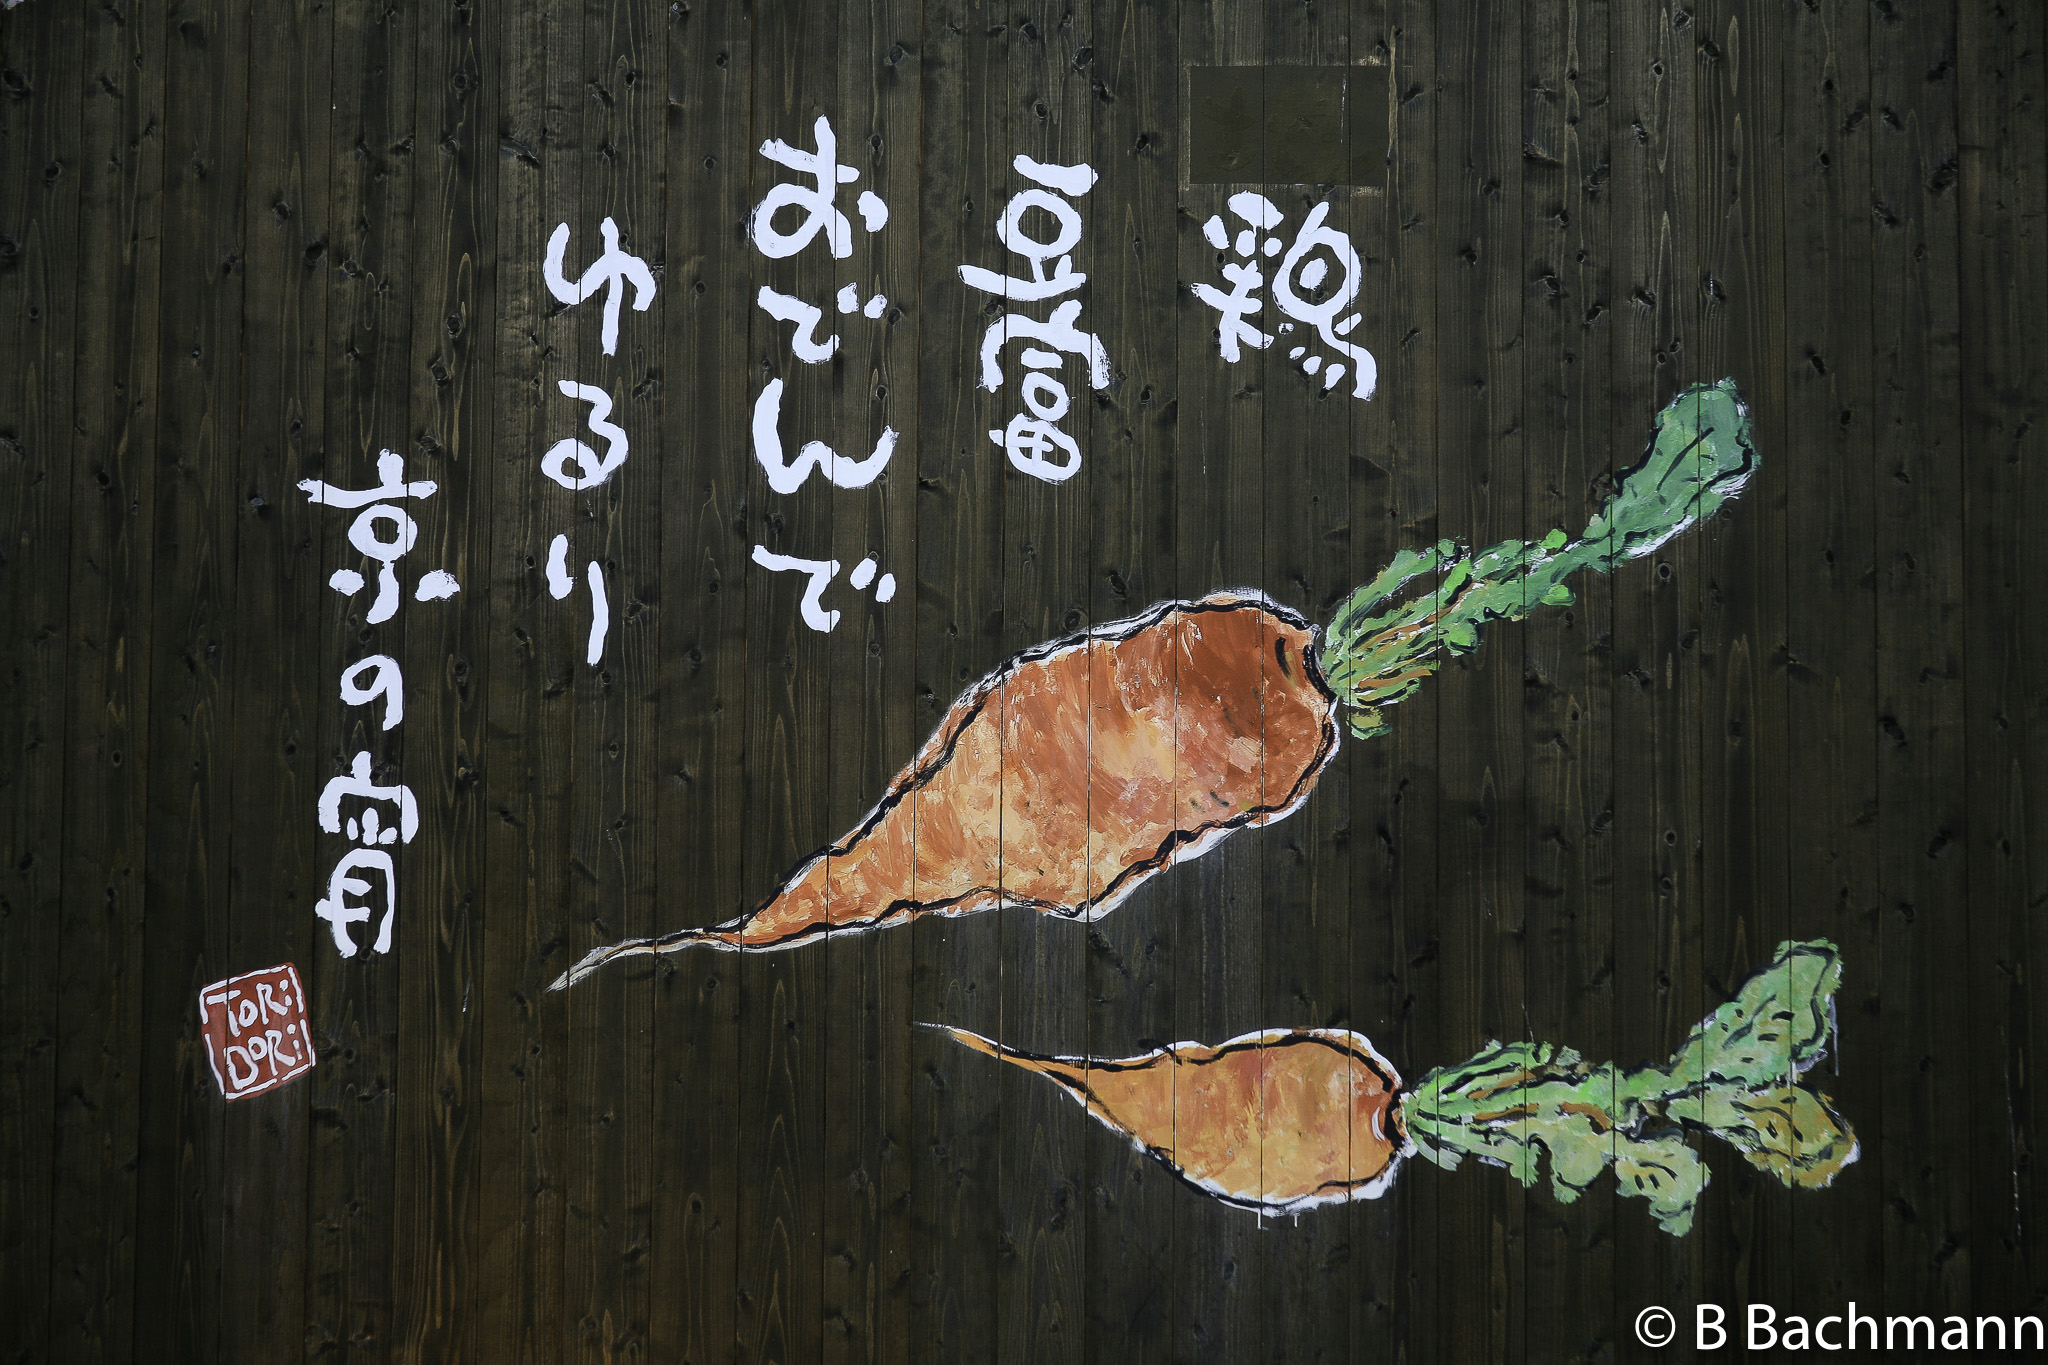 鶏
豆富
おでんで
ゆるり
京の宵
TORi
DORi
© B Bachmann